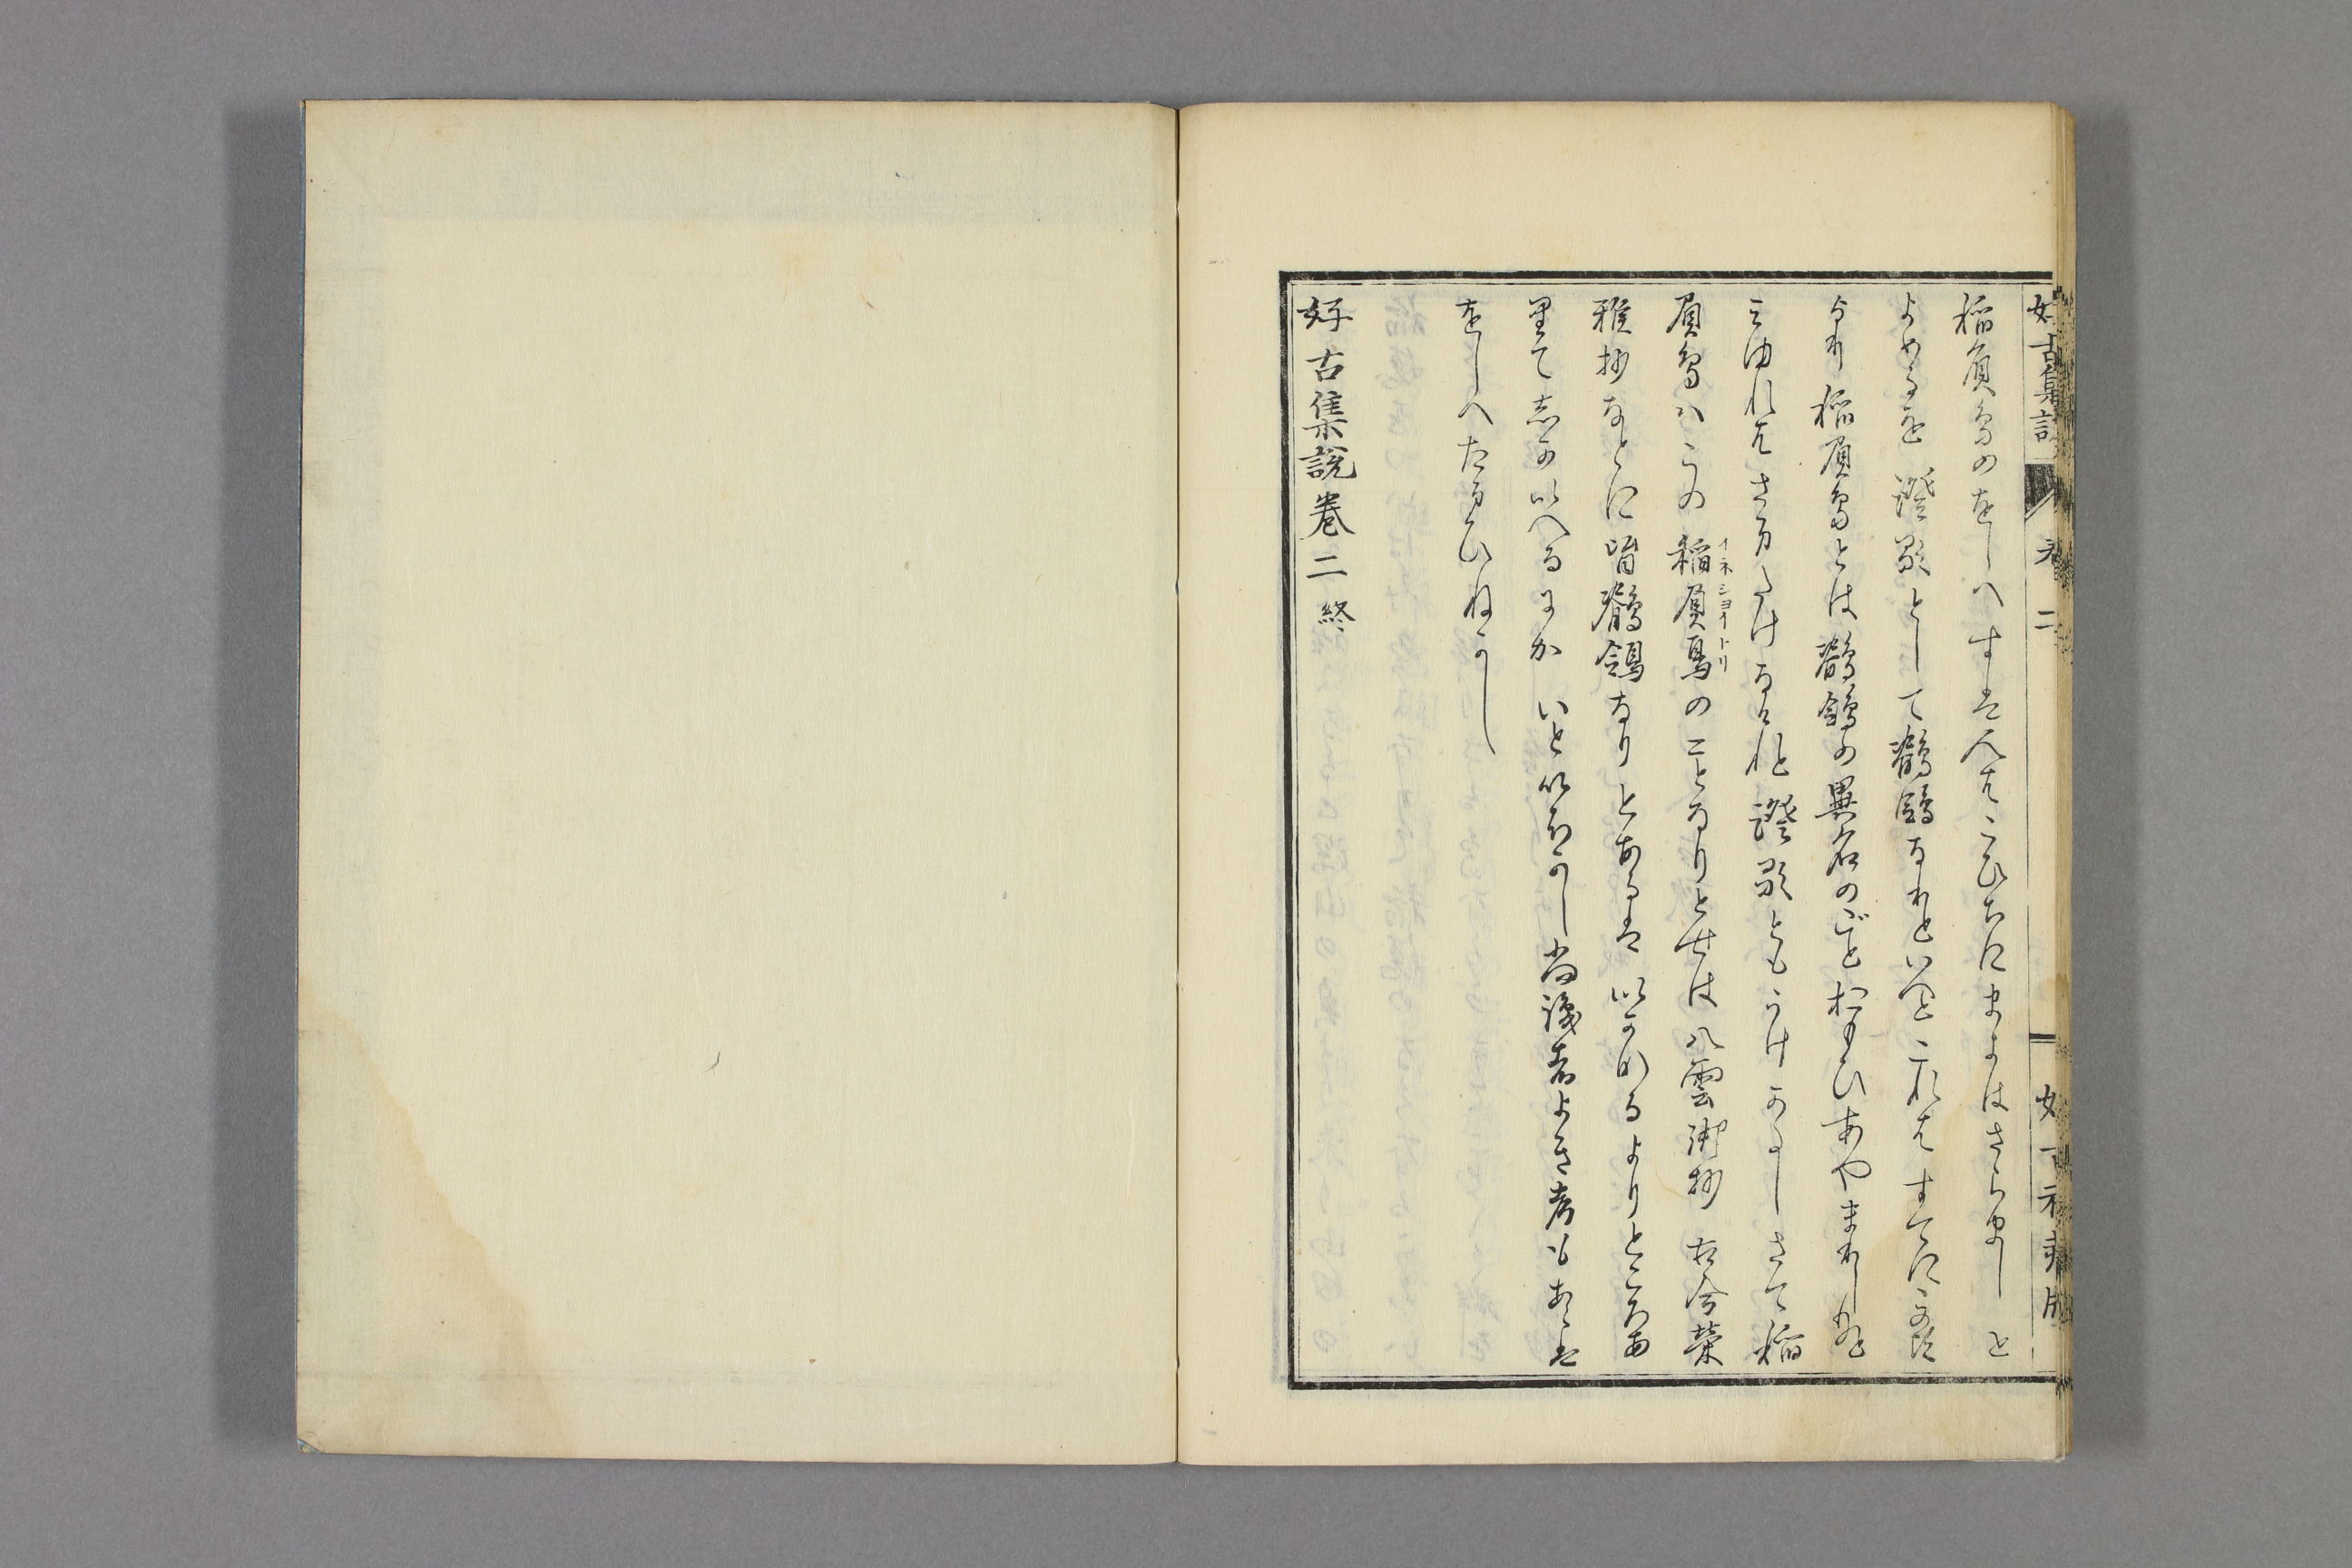 好古集説 巻二 好古社藏版
稲負鳥のをしへすは人はこひちにまよはさらまし と
よめるを證歌として鶺鴒なれといへと これは すてに
より稲負鳥とは鶺鴒の異名のごとおもひあやまれしなれと
みゆれはさるたけなれと證歌ともうけかたし さて稲
負鳥ハこの稲負鳥のことなりとせは八雲御抄 古今榮
イネシヨイトリ
雅抄なとに皆鶺鴒なりとあるは いかなるよりところあ
里てしかいへるにか いといふかし 尚識者よき考もあらは
をしへたまひねかし
好古集説巻二終